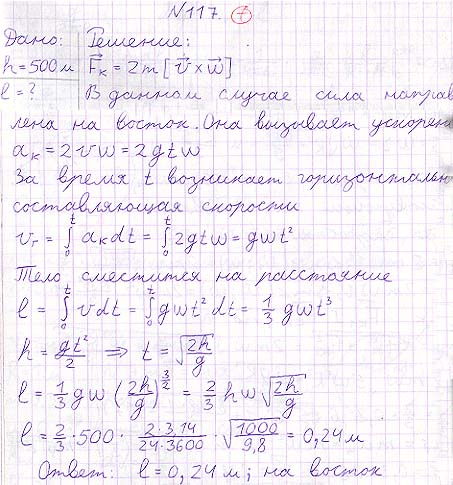 N117. 7
Дано: Решение:
h = 500 м F⃗к = 2m [v⃗ × w⃗]
l = ? В данном случае сила направ
лена на восток. Она вызывает ускорени
aк = 2vw = 2gtw
За время t возникает горизонтальн
составляющая скорости
vг = ∫₀ᵗ aкdt = ∫₀ᵗ 2gtw = gwt²
Тело сместится на расстояние
l = ∫₀ᵗ vdt = ∫₀ᵗ gwt² dt = 1/3 gwt³
h = gt²/2 ⇒ t = √(2h/g)
l = 1/3 gw (2h/g)^(3/2) = 2/3 hw √(2h/g)
l = 2/3 · 500 · 2·3,14/24·3600 · √(1000/9,8) = 0,24 м
Ответ: l = 0,24 м; на восток